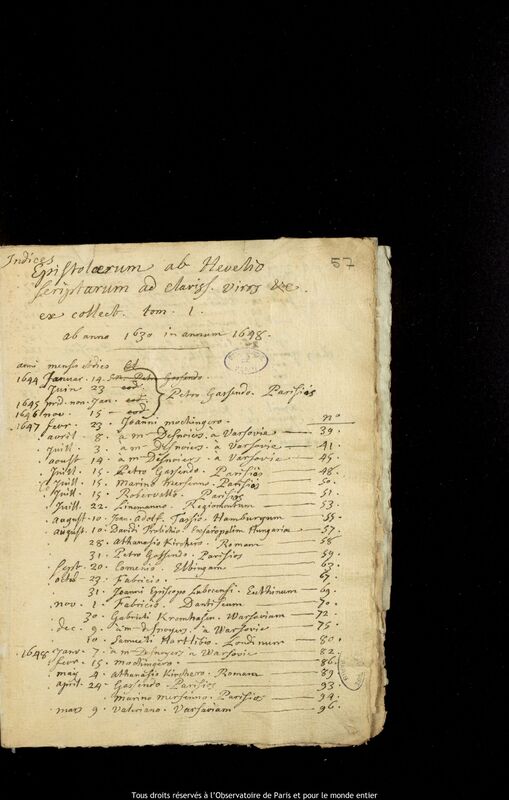 Indices
57
Epistolarum ab Hevelio
scriptarum ad clariss. viros &c.
ex collect. tom. 1.
ab anno 1630 in annum 1648.
anni menses et dies
1644 Januar. 14. Petro Gassendo.
Juin 23
1645 prid. non. Jan. Petro Gassendo. Parisios
1646 nov. 15
1647 fevr. 23. Joanni mochingero. n.o
avril 8. a mr Desnoiers à Varsovie 39.
Juill 3. a mr desnoiers à Varsovie 41
aoust 14. à mr Desnoiers à Varsovie 45
Juill. 15. Petro Gassendo. Parisios 48.
Juill. 15. Marino Mersenno. Parisios 50.
Juill. 15. Robervallo. Parisios 51
Juill. 22. Linemanno. Regiomontum 53
august. 10. Joan. Adolf. Tassio. Hamburgum 55.
august. 10. Davidi Frolichio Hungariae 57.
28. Athanasio Kirchero. Romam 58
31. Petro Gassendo. Parisios 59.
Sept. 20. Comenio. Elbingam 63
octob. 23. Fabricio. 67.
31. Joanni Episcopo Lubecensi. Euthinum 69.
nov. 1. Fabricio. Dantiscum 70.
30. Gabrieli Kromhusen. Warsaviam 72
dec. 9. à mr desnoyers. à Warsovie 75
10. Samueli Hartlibio. Londinum 80.
1648 Janv. 7. à mr Desnoyers à Warsovie 82.
fevr. 15. mochingero. 86.
mars 4. athanasio Kirchero. Romam 89
april. 24. Gassendo. Parisios 93
Marino mersenno. Parisios 94.
mars 9. Valeriano. Varsaviam 96.
Tous droits réservés à l'Observatoire de Paris et pour le monde entier